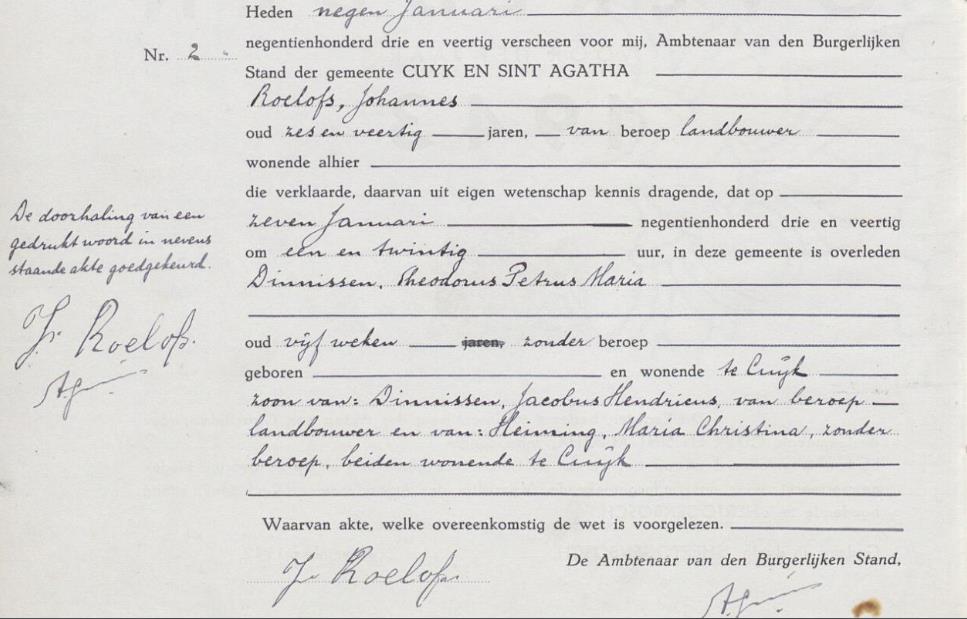 Heden negen Januari
Nr. 2
negentienhonderd drie en veertig verscheen voor mij, Ambtenaar van den Burgerlijken
Stand der gemeente CUYK EN SINT AGATHA
Roelofs, Johannes
oud zes en veertig jaren, van beroep landbouwer
wonende alhier
die verklaarde, daarvan uit eigen wetenschap kennis dragende, dat op
zeven Januari negentienhonderd drie en veertig
om een en twintig uur, in deze gemeente is overleden
Dinnissen, Theodorus Petrus Maria
oud vijf weken jaren, zonder beroep
geboren en wonende te Cuijk
zoon van: Dinnissen, Jacobus Hendricus, van beroep
landbouwer en van: Heiming, Maria Christina, zonder
beroep, beiden wonende te Cuijk
Waarvan akte, welke overeenkomstig de wet is voorgelezen.
De Ambtenaar van den Burgerlijken Stand,
J. Roelofs.
De doorhaling van een
gedrukt woord in nevens
staande akte goedgekeurd.
J. Roelofs.